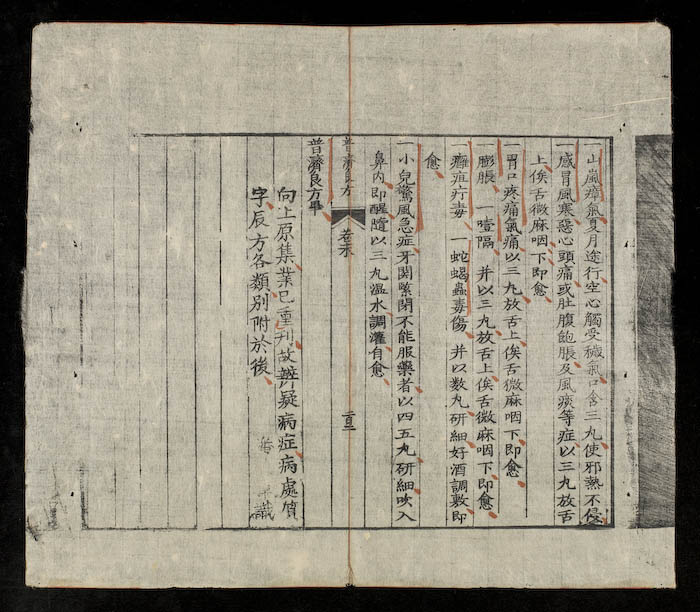 一山嵐瘴氣夏月途行空心觸受穢氣口含三丸使邪熱不侵
感冒風寒惡心頭痛或肚腹飽脹及風痰等症以三丸放舌
上俟舌微麻咽下即愈
一胃口疼痛氣痛以三丸放舌上俟舌微麻咽下即愈
一膨脹 一噎隔 并以三丸放舌上俟舌微麻咽下即愈
癰疽疔毒 一蛇蝎蟲毒傷 并以数丸研細好酒調敷即
愈
一小兒驚風急症牙関緊閉不能服藥者以四五丸研細吹入
鼻内即醒隨以三丸溫水調灌自愈
普濟良方 卷末
普濟良方畢
向上原集業已重刊故辨疑病症病處
字辰方各類別附於後
識